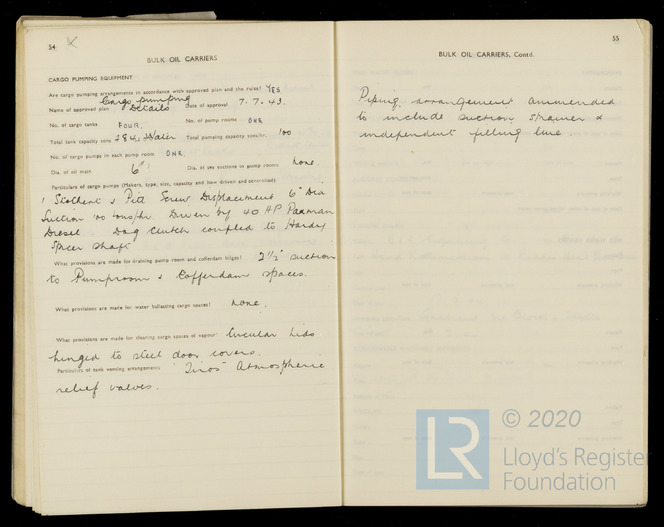 54
BULK OIL CARRIERS
CARGO PUMPING EQUIPMENT
Are cargo pumping arrangements in accordance with approved plan and the rules? YES
Name of approved plan Cargo pumping Details Date of approval 7.7.43.
No. of cargo tanks FOUR. No. of pump rooms ONE
Total tank capacity tons Water Total pumping capacity tons/hr. 100
No. of cargo pumps in each pump room ONE.
Dia. of oil main 6" Dia. of sea suctions in pump rooms None.
Particulars of cargo pumps (Makers, type, size, capacity and how driven and controlled)
1 Stothert & Pitt Screw Displacement 6" Dia
Suction 100 tons/hr. Driven by 40 HP Paxman
Diesel. Dog clutch coupled to Hardy
Spicer shaft
What provisions are made for draining pump room and cofferdam bilges? 2½" suction
to Pumproom & Cofferdam spaces.
What provisions are made for water ballasting cargo spaces? None.
What provisions are made for cleaning cargo spaces of vapour? Circular lids
hinged to steel door covers.
Particulars of tank venting arrangements "Tiros" Atmospheric
relief valves.
55
BULK OIL CARRIERS, Contd.
Piping arrangement ammended
to include suction strainer &
independent filling line.
© 2020
LR
Lloyd's Register
Foundation